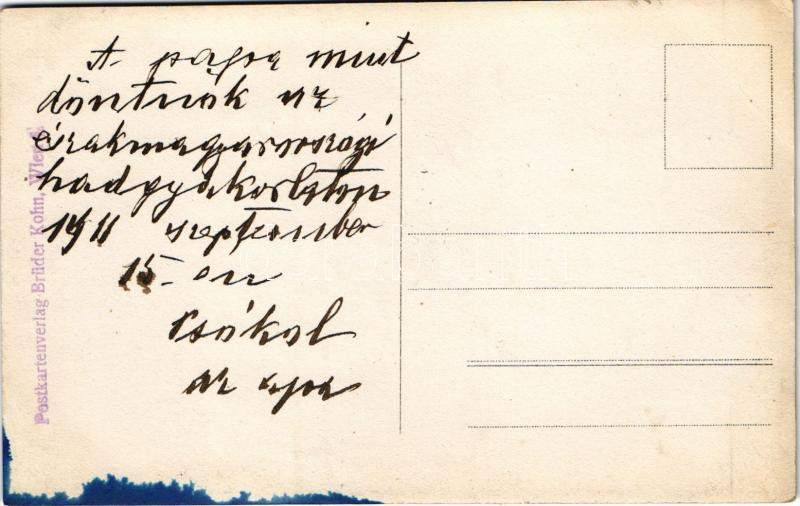 A pápa mint
döntnök az
északmagyarországi
hadgyakorlaton
1911 szeptember
15.-én
Csókol
az apa
Postkartenverlag Brüder Kohn, Wien I.
darabanth